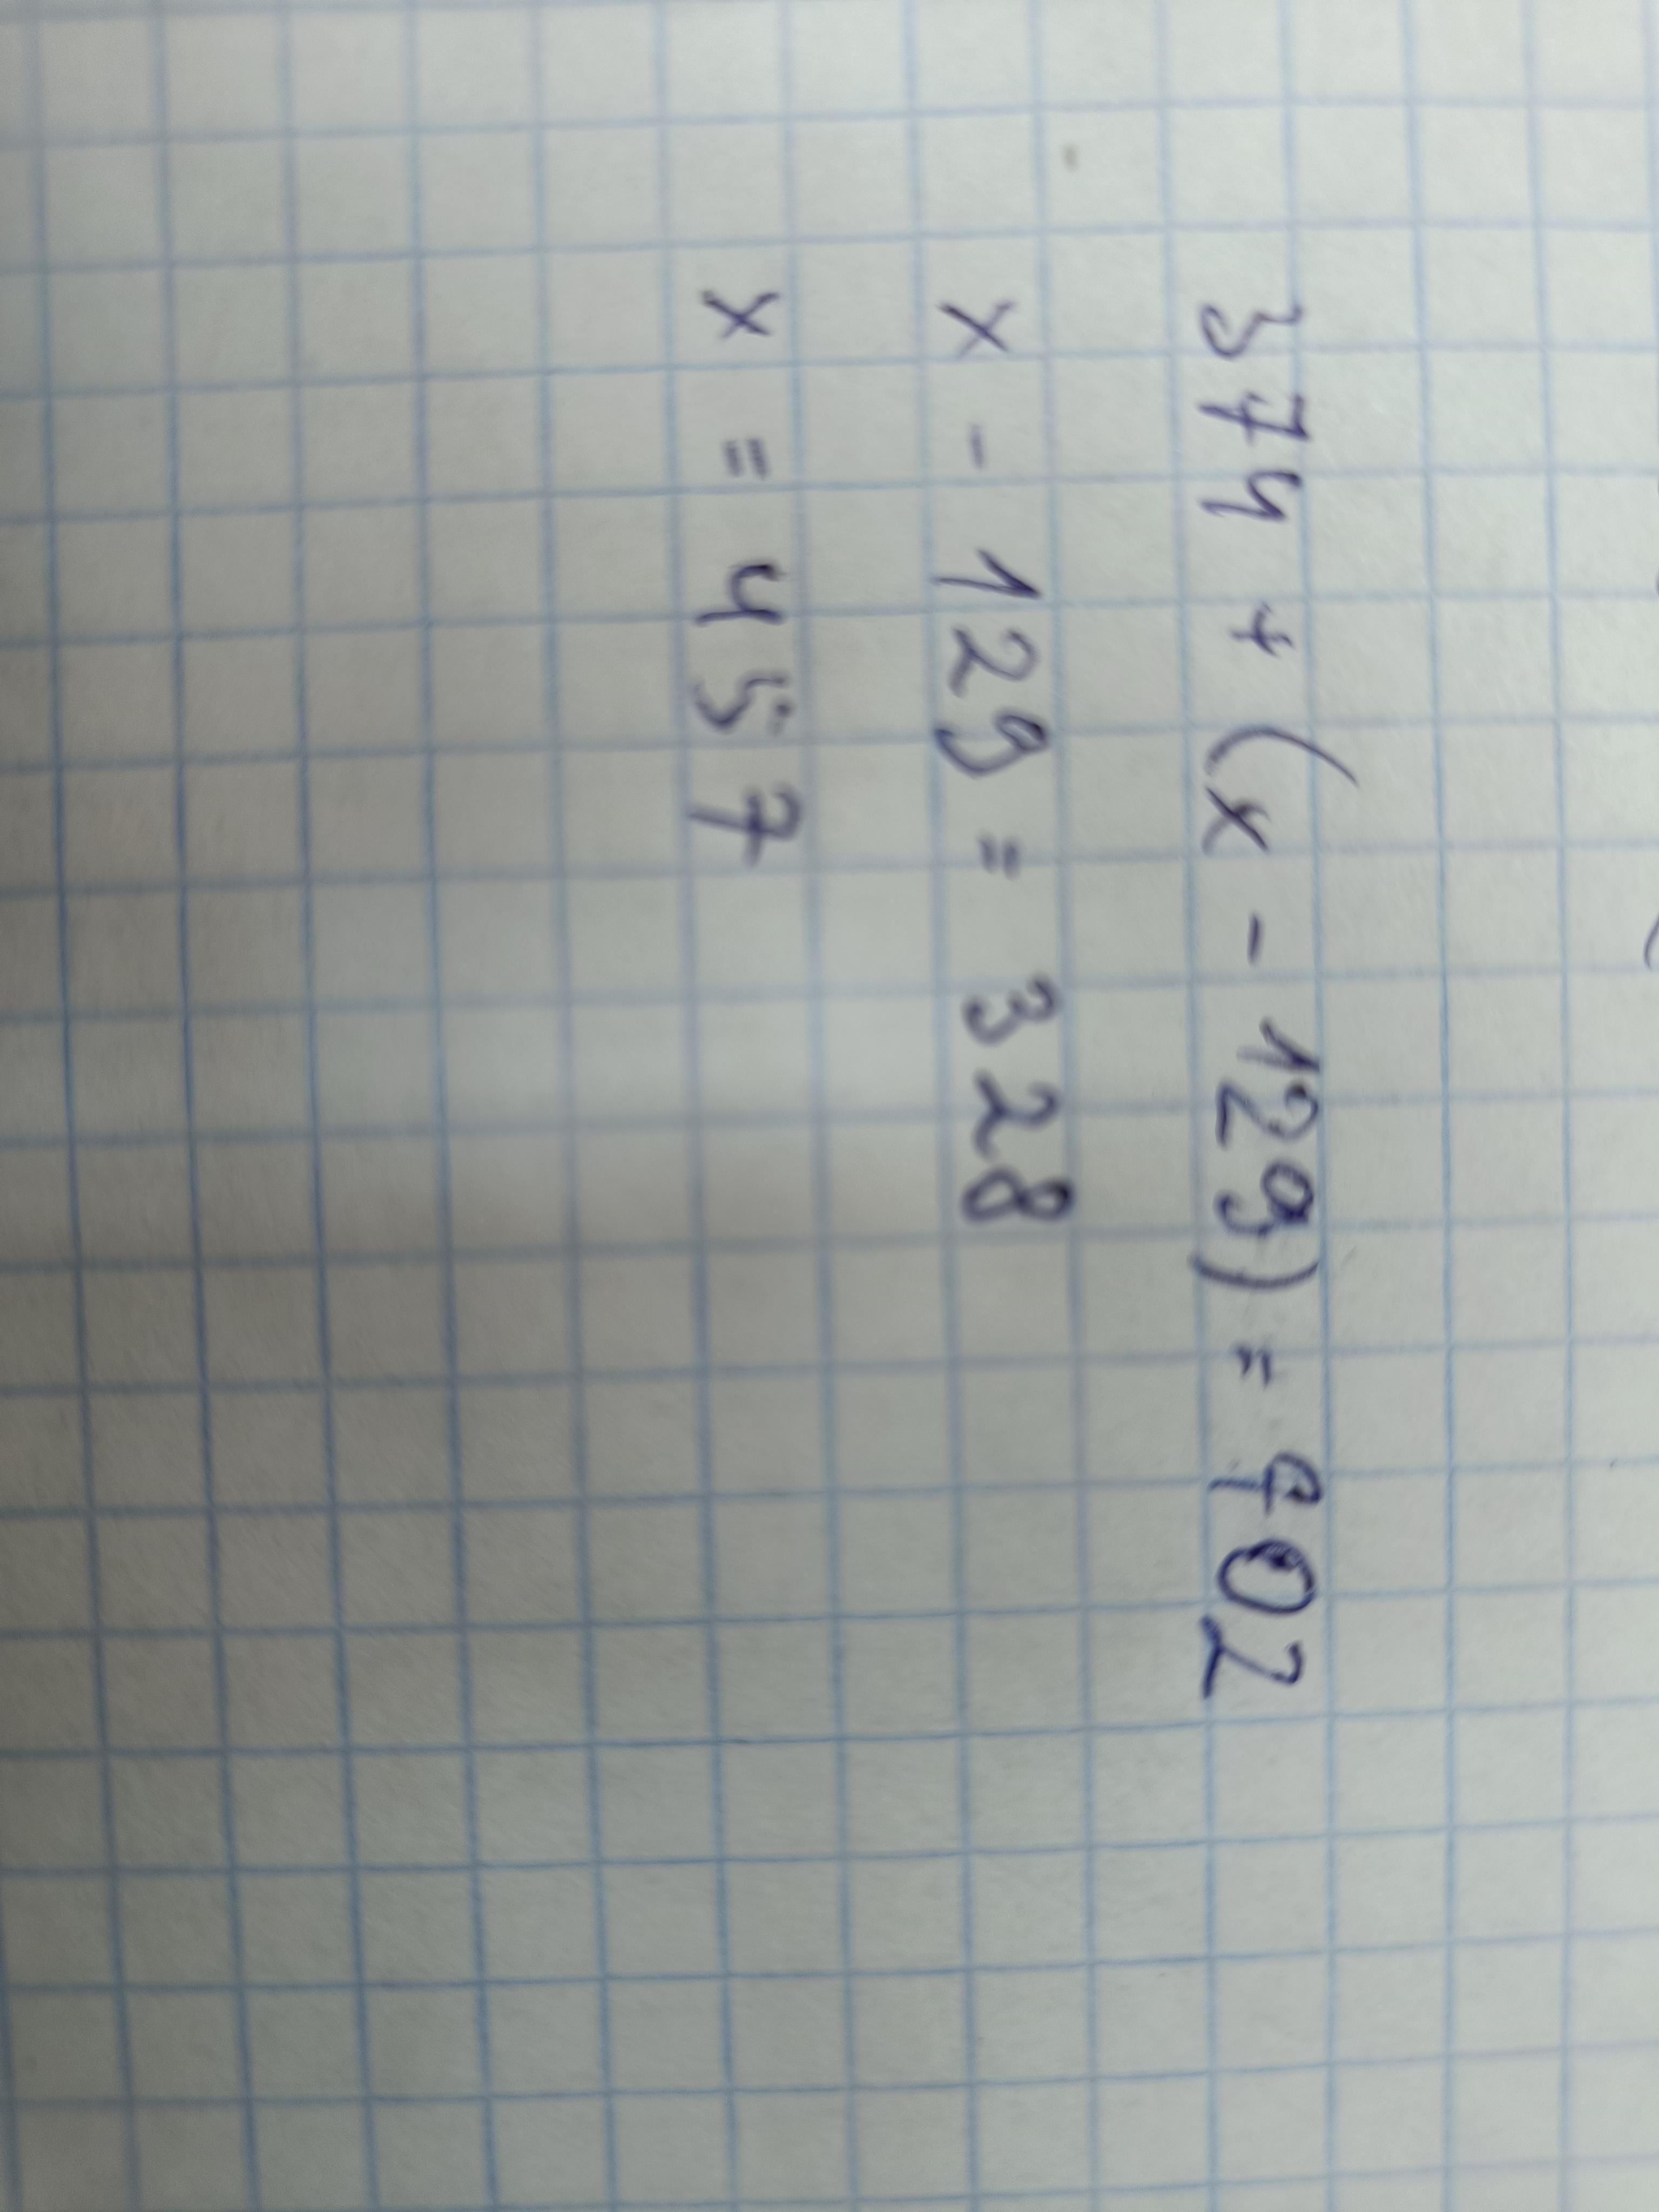 374 + (x - 129) = 702
x - 129 = 328
x = 457